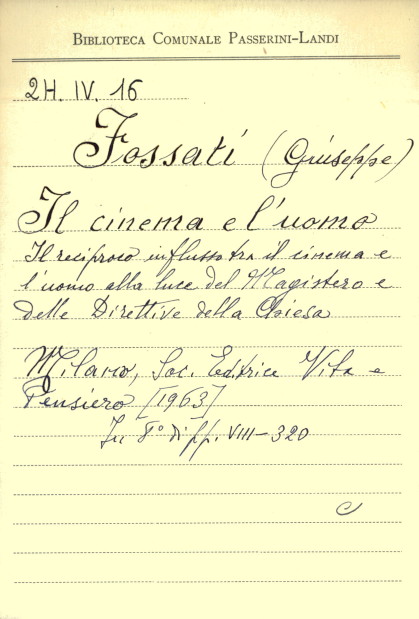 BIBLIOTECA COMUNALE PASSERINI-LANDI
2H. IV. 16
Fossati (Giuseppe)
Il cinema e l'uomo
Il reciproco influsso tra il cinema e
l'uomo alla luce del Magistero e
delle Direttive della Chiesa
Milano, Soc. Editrice Vita e
Pensiero [1963]
In 8° di pp. VIII-320
C